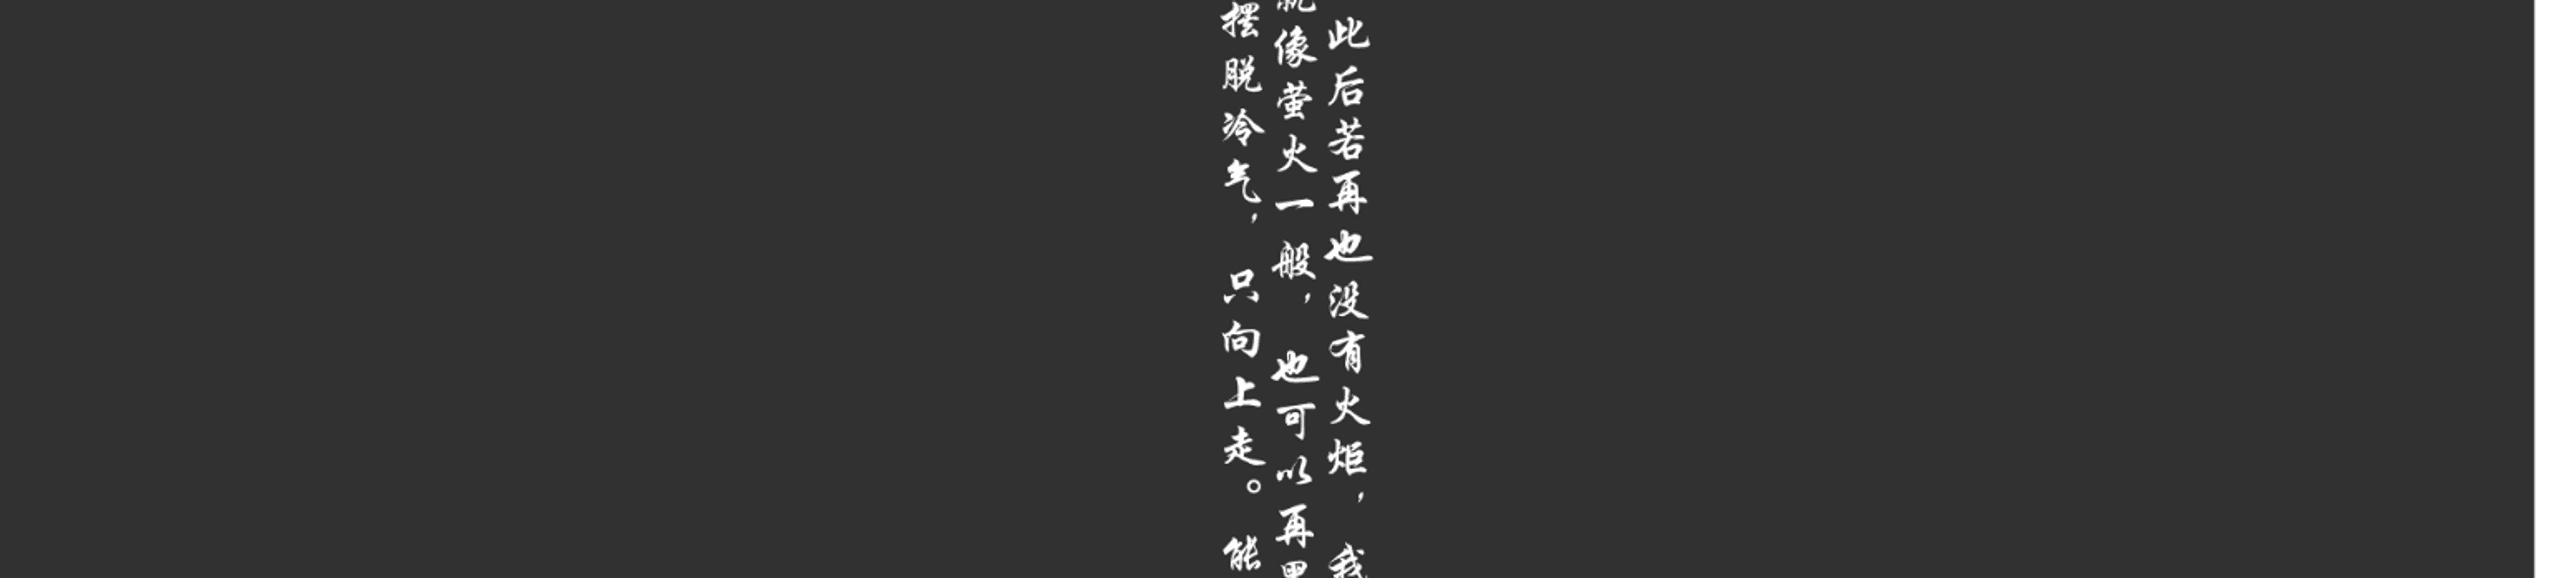 此后若再也没有火炬，我
像萤火一般，也可以再
摆脱冷气，只向上走。能